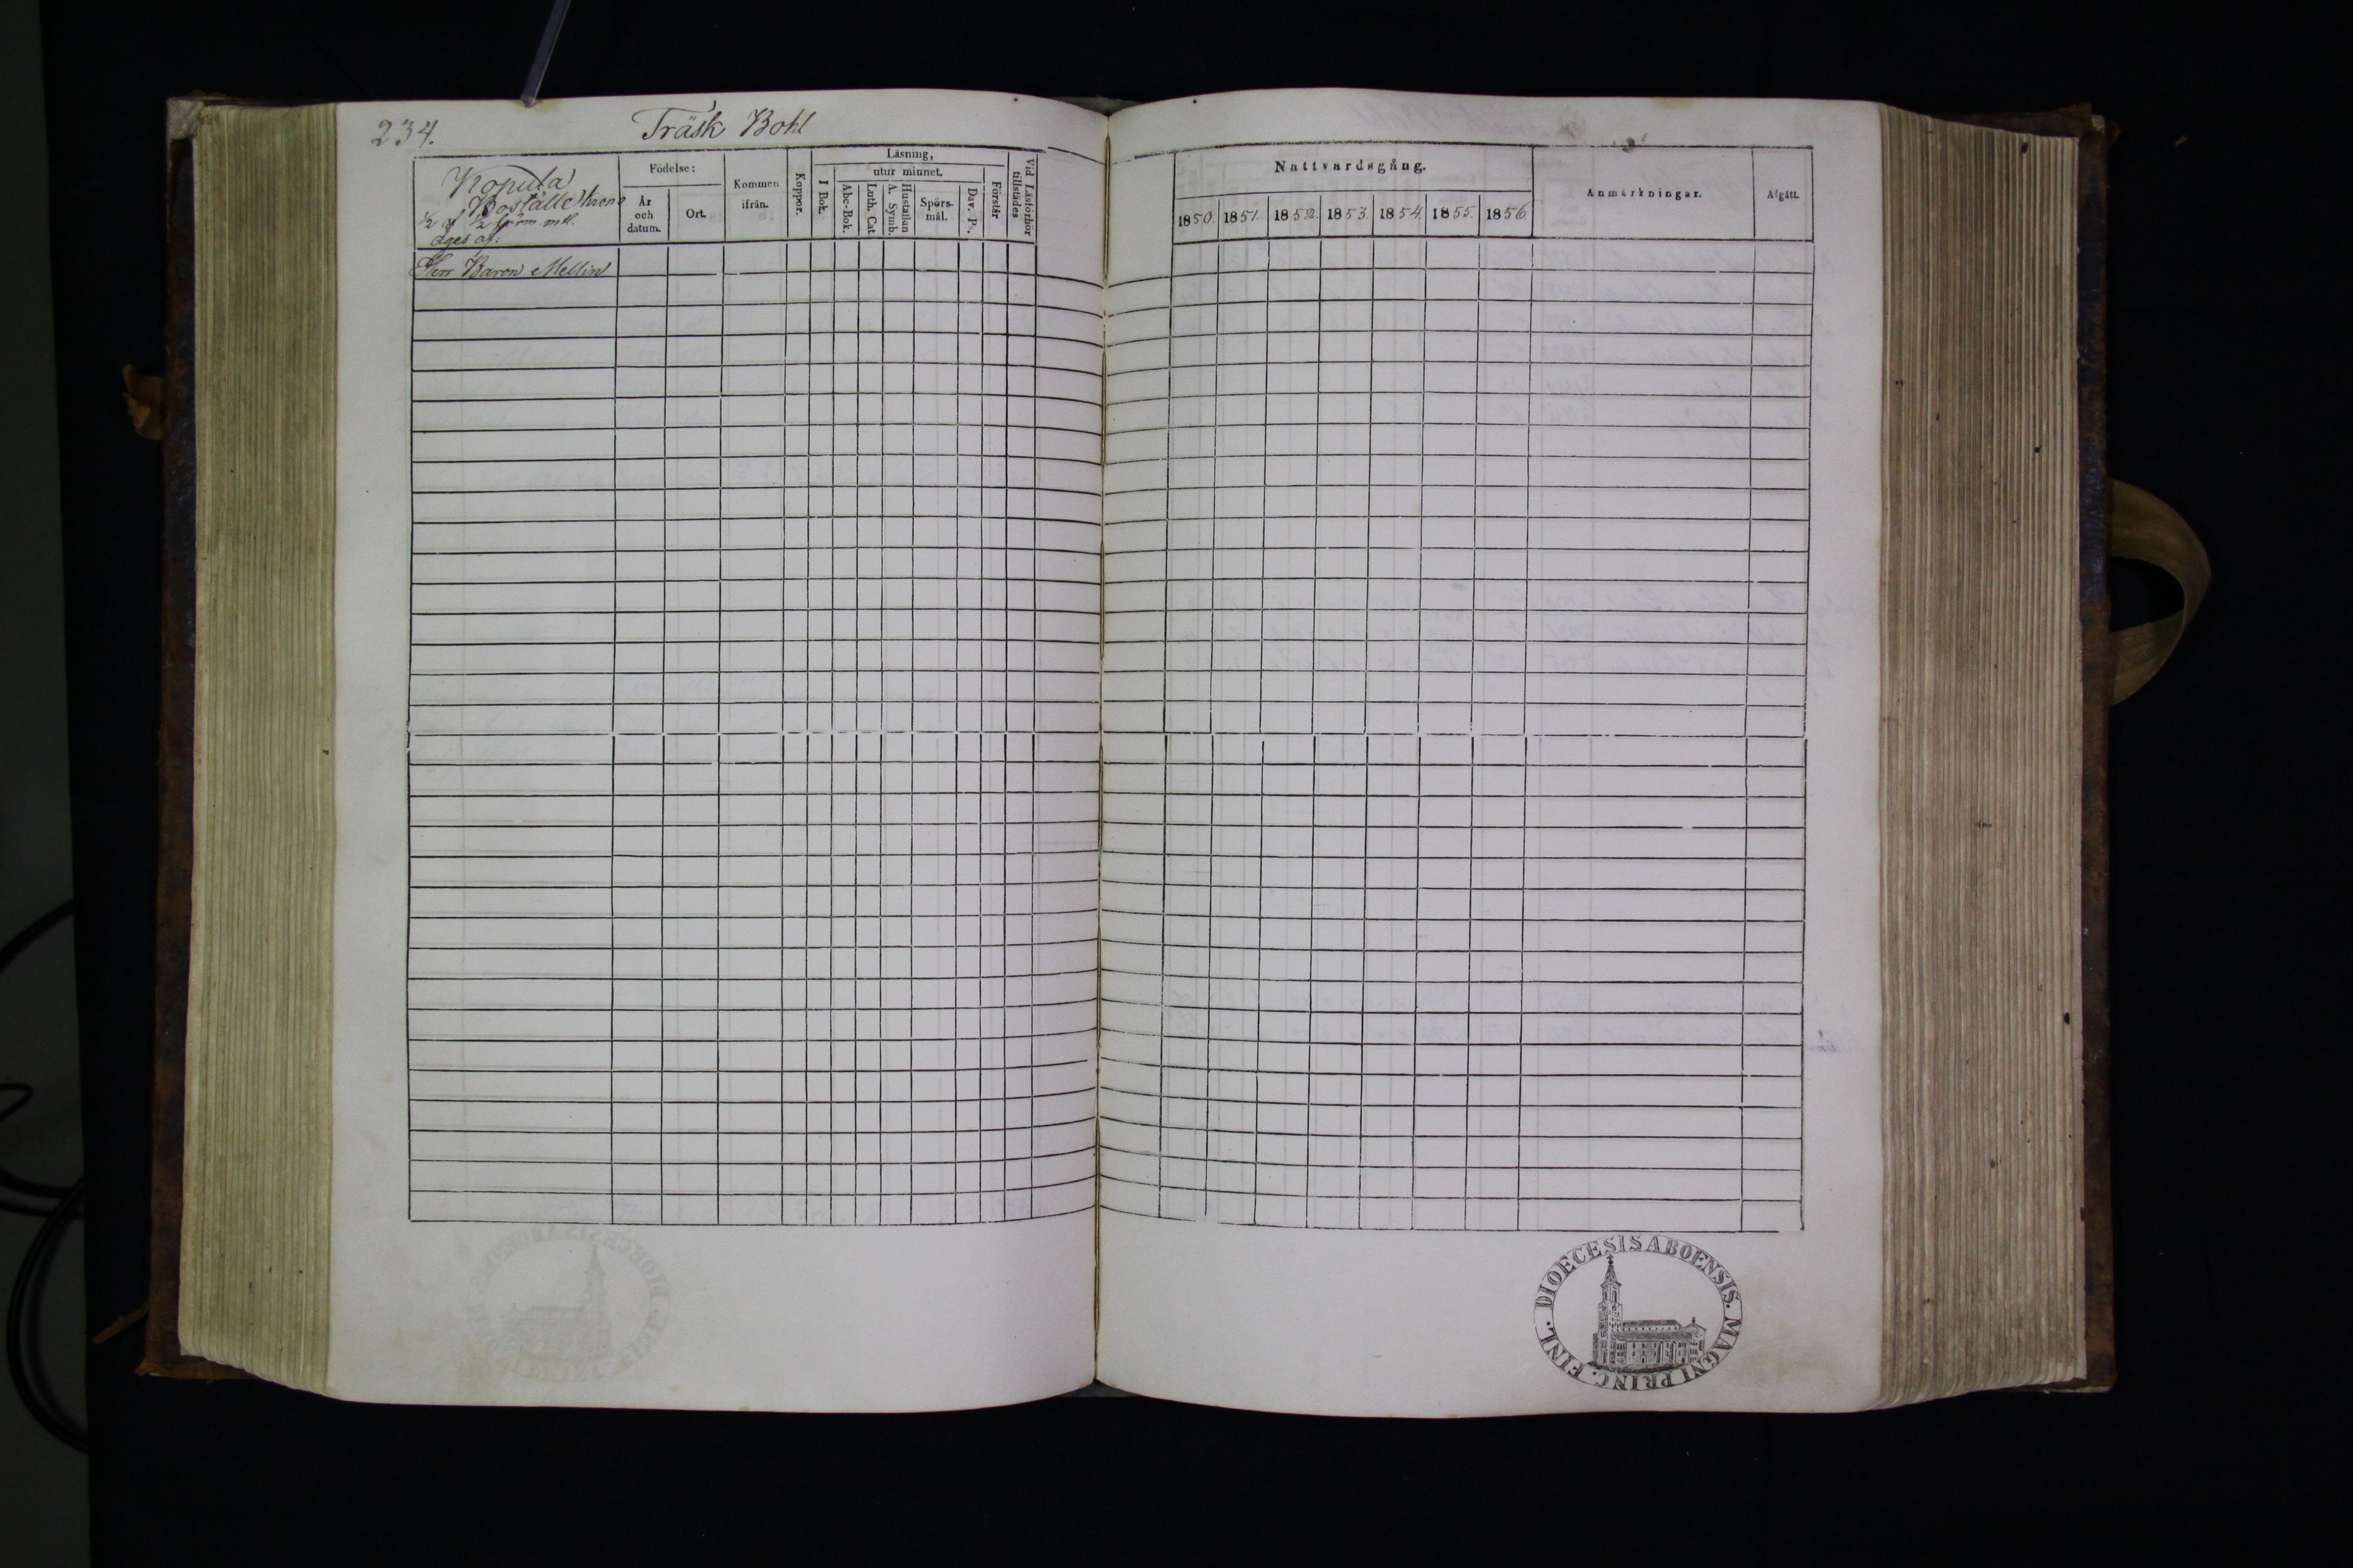 234.
Träsk Bohl
Kopula
Boställe Krono
½ af ½ förm. mtl.
äges af:
Födelse:
År
och
datum.
Ort.
Kommen
ifrån.
Koppor.
Läsning,
utur minnet.
I Bok.
Abc-Bok.
Luth. Cat.
A. Symb.
Hustaflan
Spörs-
mål.
Dav. Ps.
Förstår
Vid Läsförhör
tillstädes
Herr Baron Mellin
Nattvardsgång.
1850. 1851. 1852. 1853. 1854. 1855. 1856.
Anmärkningar.
Afgått.
DIOECESIS ABOENSIS. MAGNI PRINC. FINL.